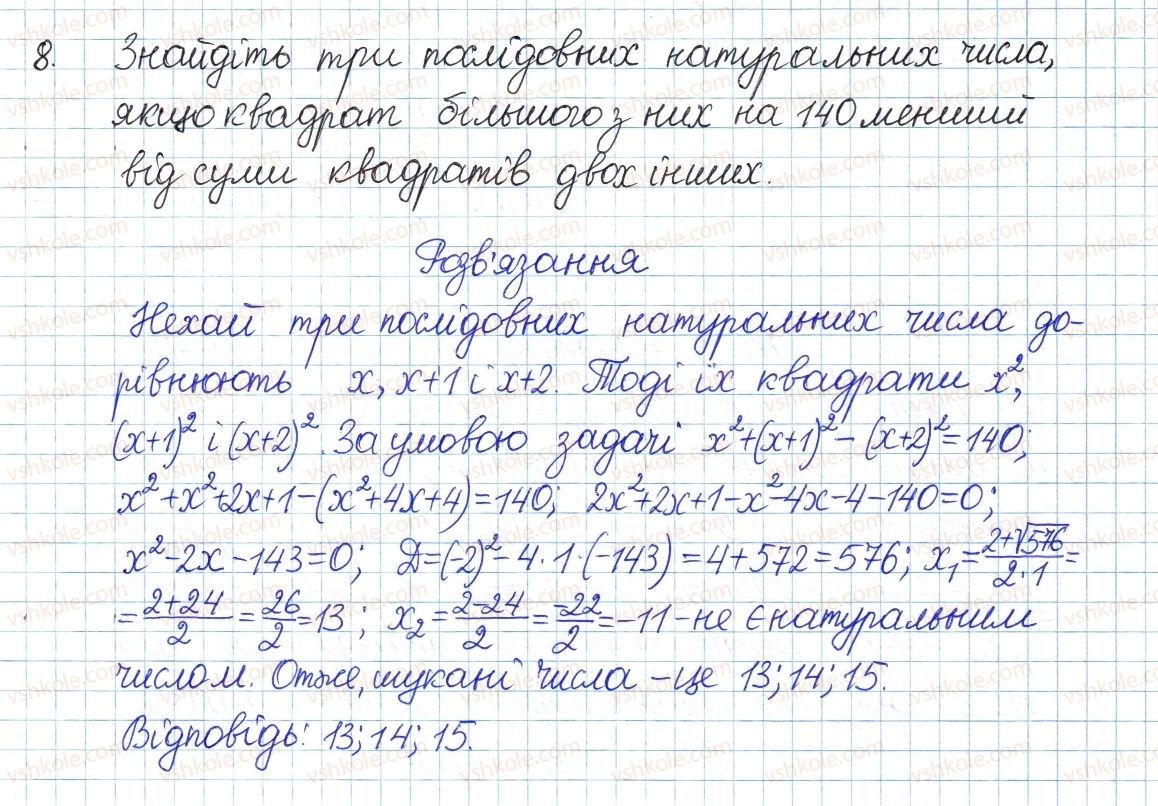 8. Знайдіть три послідовних натуральних числа,
якщо квадрат більшого з них на 140 менший
від суми квадратів двох інших.
Розв'язання
Нехай три послідовних натуральних числа до-
рівнюють x, x+1 і x+2. Тоді їх квадрати x²,
(x+1)² і (x+2)². За умовою задачі x²+(x+1)²-(x+2)²=140;
x²+x²+2x+1-(x²+4x+4)=140; 2x²+2x+1-x²-4x-4-140=0;
x²-2x-143=0; Д=(-2)²-4·1·(-143)=4+572=576; x₁=(2+√576)/(2·1)=
=(2+24)/2=26/2=13; x₂=(2-24)/2=-22/2=-11-не є натуральним
числом. Отже, шукані числа - це 13; 14; 15.
Відповідь: 13; 14; 15.